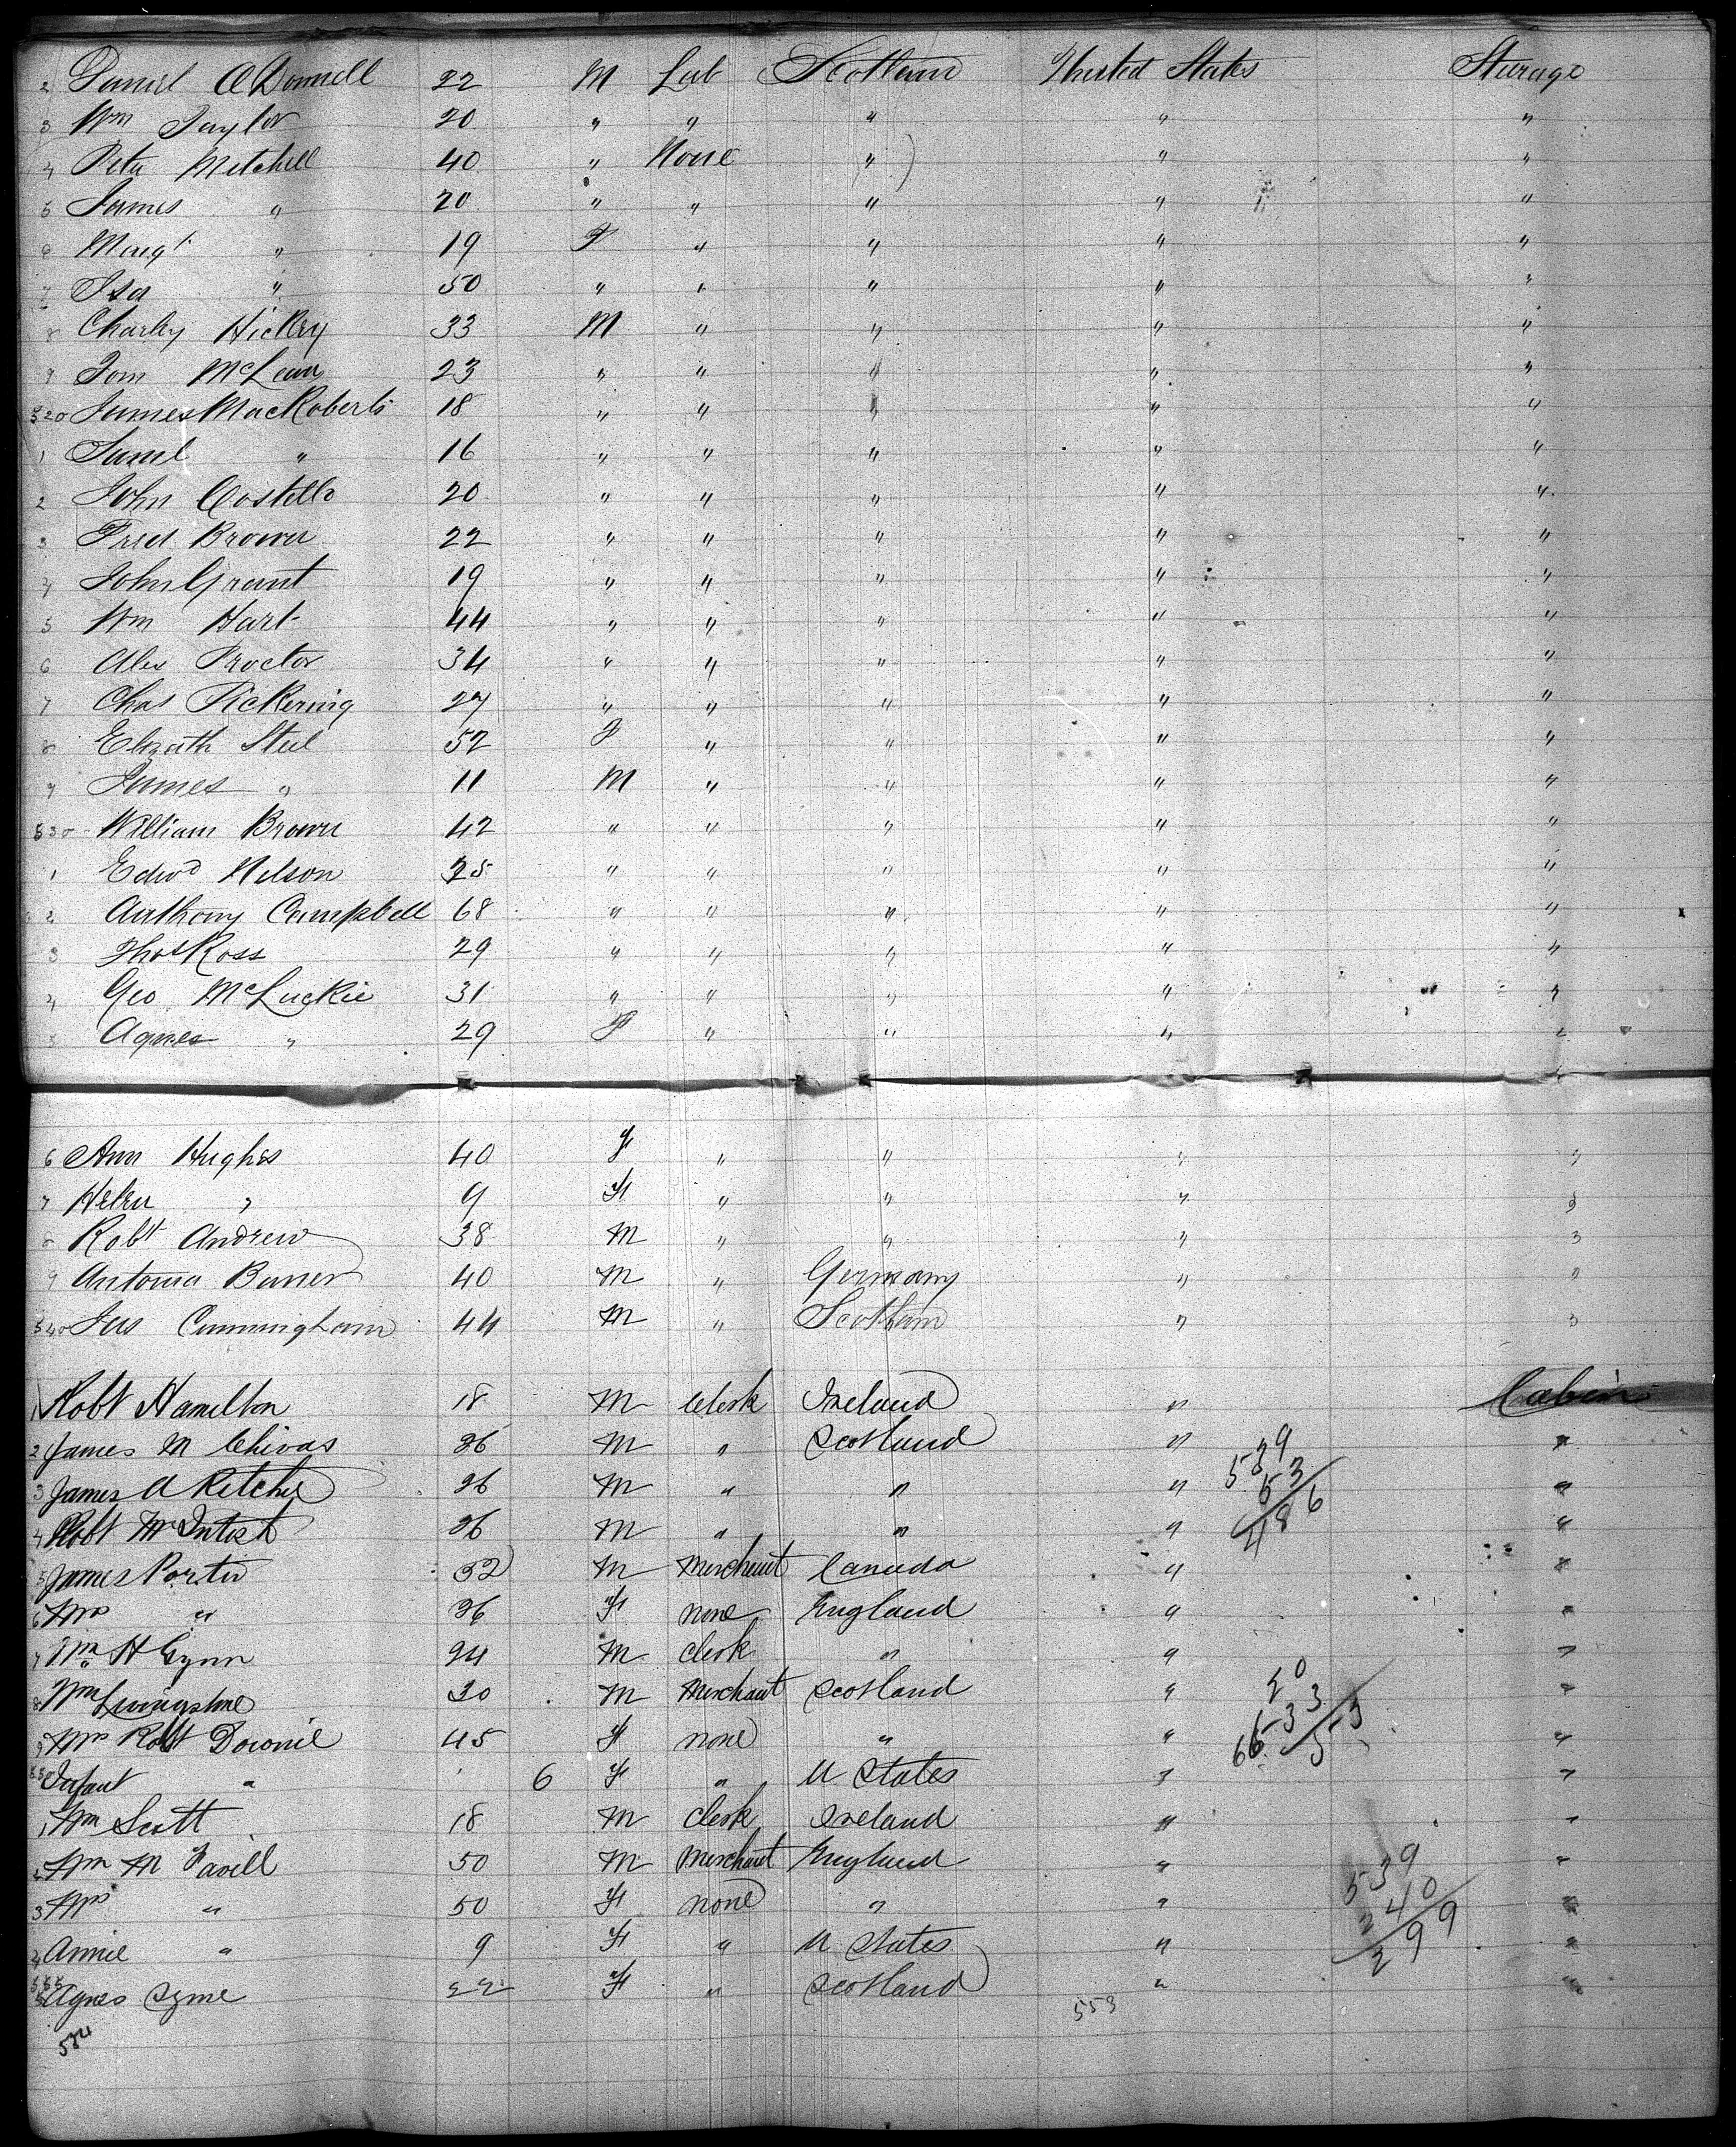 2 Daniel O'Donnell 22 M Lab Scotland United States Sturage
3 Wm Taylor 20 " " " " "
4 Peter Mitchell 40 " None " " "
5 James " 20 " " " " "
6 Margt " 19 F " " " "
7 Isa " 50 " " " " "
8 Charley Hickey 33 M " " " "
9 Tom McLean 23 " " " " "
520 James MacRoberts 18 " " " " "
1 Saml " 16 " " " " "
2 John Costello 20 " " " " "
3 Fred Brown 22 " " " " "
4 John Grant 19 " " " " "
5 Wm Hart 44 " " " " "
6 Alex Proctor 34 " " " " "
7 Chas Pickering 27 " " " " "
8 Elizath Steel 52 F " " " "
9 James " 11 M " " " "
530 William Brown 42 " " " " "
1 Edwd Nelson 25 " " " " "
2 Anthony Campbell 68 " " " " "
3 Thos Ross 29 " " " " "
4 Geo McLuckie 31 " " " " "
5 Agnes " 29 F " " " "
6 Ann Hughes 40 F " " " "
7 Helen " 9 F " " " "
8 Robt Andrew 38 M " " " "
9 Antonia 40 M " Germany " "
540 Jas Cunningham 44 M " Scotland " "
1 Robt Hamilton 18 M Clerk Ireland " Cabin
2 James M Chivas 26 M " Scotland " "
539
53
486
3 James A Ritchie 26 M " " " "
4 Robt McIntosh 26 M " " " "
5 James Porter 32 M Merchant Canada " "
6 Mrs " 26 F none England " "
7 Wm H Gynn 24 M clerk " " "
8 Wm Livingstone 30 M Merchant Scotland " "
20
33
53
66
9 Mrs Robt Downie 45 F none " " "
550 Infant " 6 F " U States " "
1 Wm Scott 18 M clerk Ireland " "
2 Wm M Favill 50 M Merchant England " "
3 Mrs " 50 F none " " "
539
240
299
4 Annie " 9 F " U States " "
555 Agnes Syme 22 F " Scotland " "
553
554